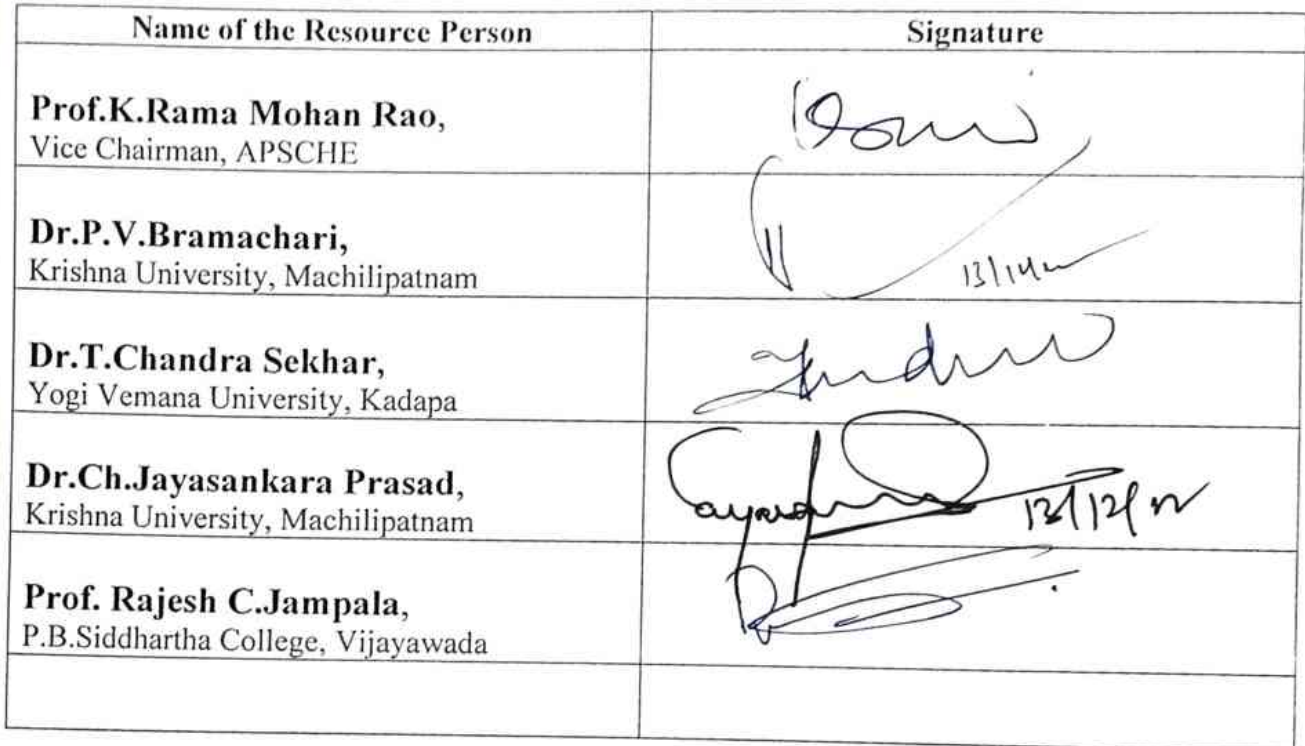 Name of the Resource Person Signature
Prof.K.Rama Mohan Rao,
Vice Chairman, APSCHE
Dr.P.V.Bramachari,
Krishna University, Machilipatnam
Dr.T.Chandra Sekhar,
Yogi Vemana University, Kadapa
Dr.Ch.Jayasankara Prasad,
Krishna University, Machilipatnam
Prof. Rajesh C.Jampala,
P.B.Siddhartha College, Vijayawada